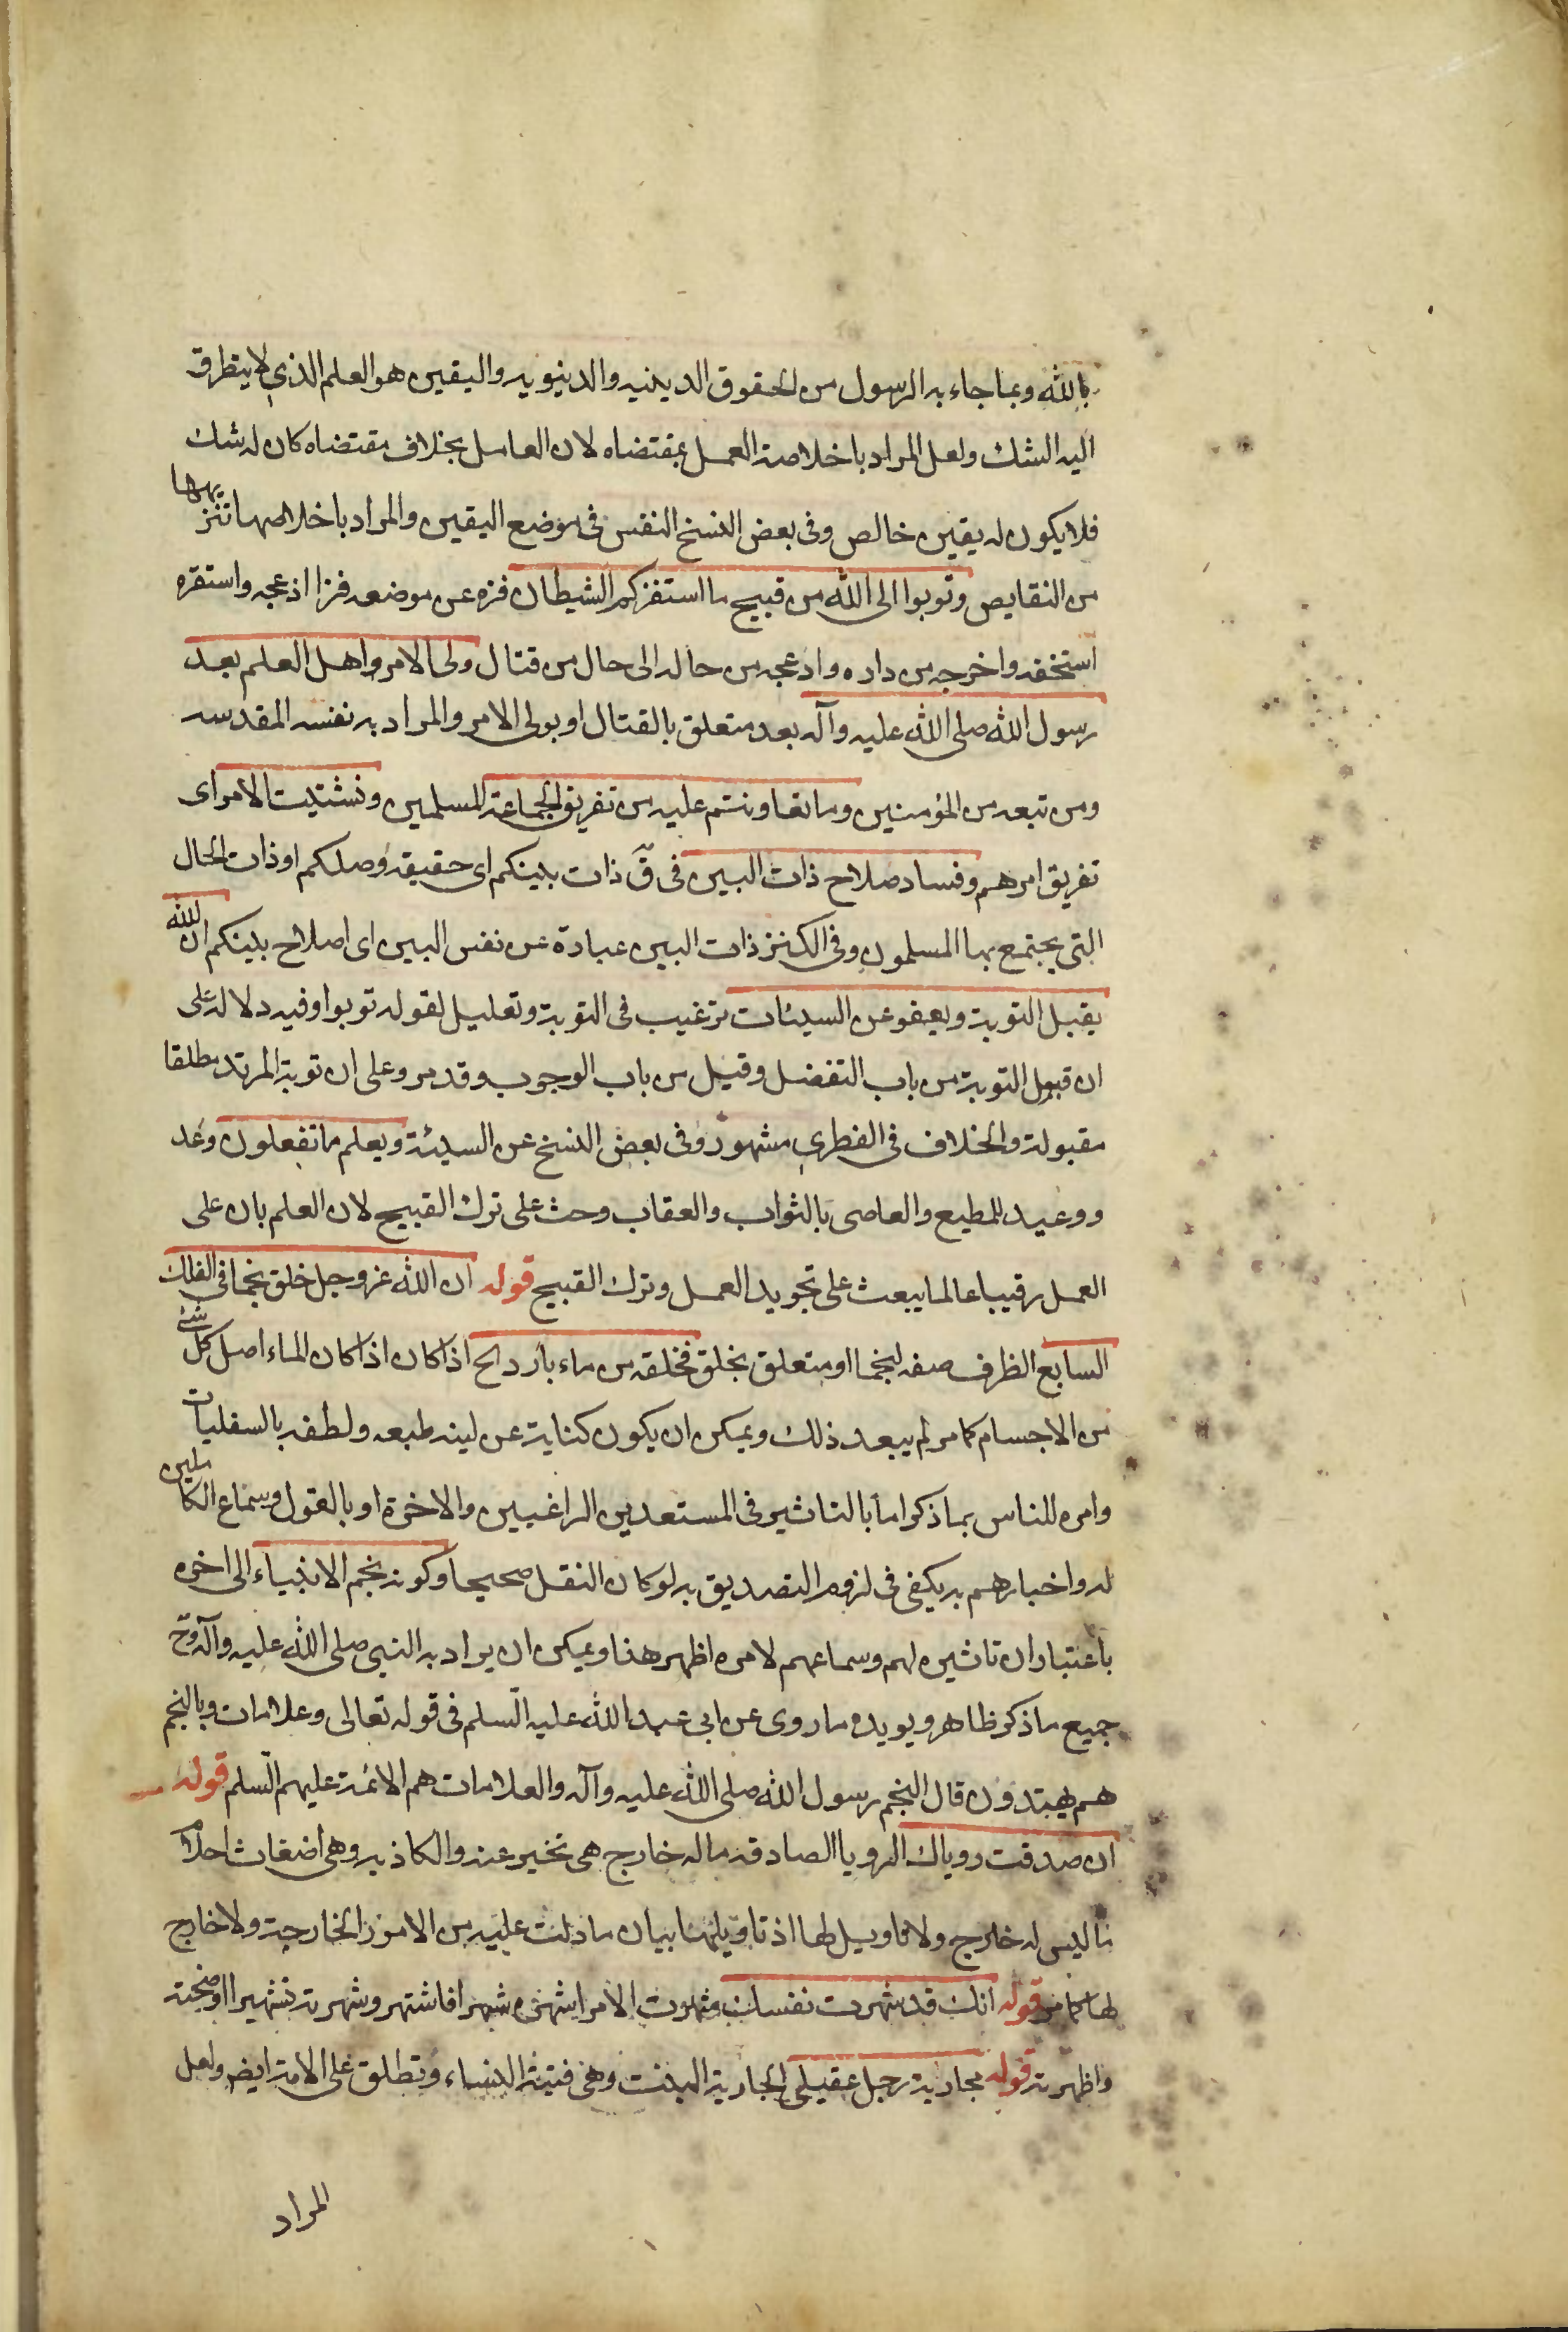 بالله وبما جاء به الرسول من الحقوق الدينيه والدنيويه واليقين هو العلم الذي لا يتطرق
اليه الشك ولعل المراد باخلاصه العمل بمقتضاه لان العامل بخلاف مقتضاه كان له شك
فلا يكون له يقين خالص وفى بعض النسخ النفس فى موضع اليقين والمراد باخلاصها تنزيهها
من النقايص وتوبوا الى الله من قبيح ما استفزكم الشيطان فزه عن موضعه فزا اذعجه واستفزه
استخفه واخرجه من داره واذعجه من حاله الى حال من قتال ولى الامر واهل العلم بعد
رسول الله صلى الله عليه وآله بعد متعلق بالقتال او بولى الامر والمراد به نفسه المقدسه
ومن تبعه من المؤمنين وما تعاونتم عليه من تفريق الجماعة المسلمين وتشتيت الامر اى
تفريق امرهم وفساد صلاح ذات البين فى قّ ذات بينكم اى حقيقه وصلكم او ذات الحال
التى يجتمع بها المسلمون وفى الكنز ذات البين عبادة عن نفس البين اى اصلاح بينكم ان الله
يقبل التوبة ويعفو عن السيئات ترغيب فى التوبة وتعليل لقوله توبوا وفيه دلاله على
ان قبول التوبة من باب التفضل وقيل من باب الوجوب وقد مر وعلى ان توبة المرتد مطلقا
مقبولة والخلاف فى الفطري مشهور وفى بعض النسخ عن السيئة ويعلم ما تفعلون وعد
ووعيد للمطيع والعاصى بالثواب والعقاب وحث على ترك القبيح لان العلم بان على
العمل رقيبا عالما يبعث على تجويد العمل وترك القبيح قوله ان الله عز وجل خلق نجما فى الفلك
السابع الظرف صفه لنجما او متعلق بخلق فخلقه من ماء بارد الخ اذا كان اذا كان الماء اصل كل شئ
من الاجسام كما مر لم يبعد ذلك ويمكن ان يكون كناية عن لينه طبعه ولطفه بالسفليات
وامره للناس بما ذكر اما بالتاثير فى المستعدين الراغبين والاخرة او بالقول وسماع الكاملين
له واخبارهم به يكفى فى لزوم التصديق به لو كان النقل صحيحا وكونه نجم الانبياء الى اخره
باعتبار ان تاثيره لهم وسماعهم لامره اظهر هذا ويمكن ان يراد به النبي صلى الله عليه وآله وح
جميع ما ذكر ظاهر ويويده ما روى عن ابى عبد الله عليه السلم فى قوله تعالى وعلامات وبالنجم
هم يهتدون قال النجم رسول الله صلى الله عليه وآله والعلامات هم الائمة عليهم السلم قوله
ان صدقت روياك الرويا الصادقه ما له خارج هى تخير عنه والكاذبه وهى اضغاث احلام
ما ليس له خارج ولا تاويل لها اذ تاويلهنا بيان ما دلت عليه من الامور الخارجية ولا خارج
لها كما مر قوله انك قد شهرت نفسك شهرت الامر اشهره شهرا فاشتهر وشهرته تشهيرا اوضحته
واظهرته قوله مجارية رجل عقيلى الجارية البنت وهى فتيته النساء وتطلق على الامة ايضا ولعل
المراد